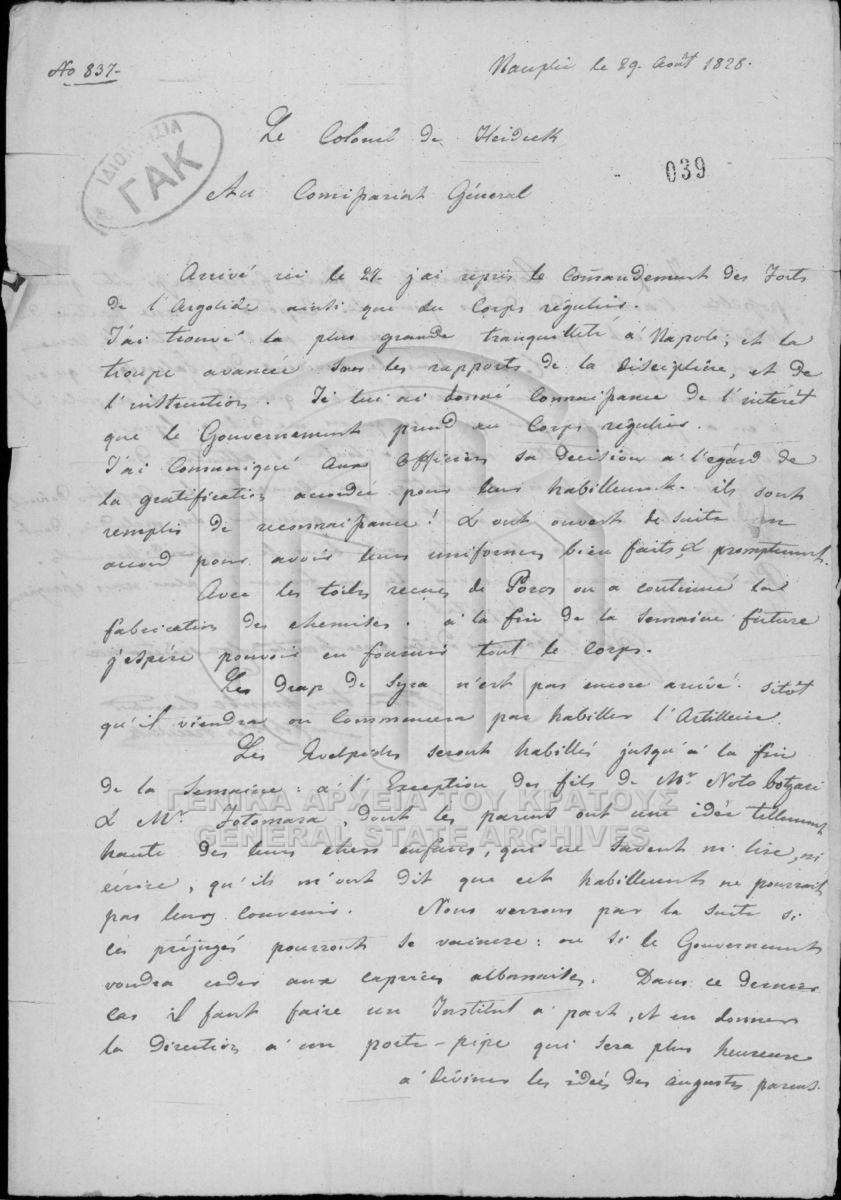 No 837-
Nauplie le 29. Août 1828.
Le Colonel de Heideck
ΓΑΚ
039
Au Comissariat Général
Arrivé ici le 27 j'ai repris le Comandement des Forts
de l'Argolide ainsi que du Corps régulier.
J'ai trouvé la plus grande tranquilleté à Napoli; et la
troupe avancée sous les rapports de la discipline, et de
l'instruction. Je lui ai donné Connaissance de l'intérêt
que le Gouvernement prend au Corps régulier.
J'ai Comuniqué aux Officiers sa decision a l'egard de
la gratification accordée pour leur habillement. ils sont
remplis de reconnaissance! & ont ouvert de suite un
accord pour avoir leurs uniformes bien faits, & promptement.
Avec les toiles recues de Poros on a continué la
fabrication des chemises. à la fin de la semaine future
j'espère pouvoir en fournir tout le Corps.
Les drap de Syra n'est pas encore arrivé. sitôt
qu'il viendra on Commencera par habiller l'Artillerie.
Les Evelpides seront habillés jusqu'à la fin
de la Semaine: a l'Exception des fils de Mr Noto Botzari
& Mr. Fotomara, dont les parens ont une idée tellement
haute des leurs chers enfans, qui ne savent ni lire, ni
écrire, qu'ils m'ont dit que cet habillement ne pourrait
pas leurs Convenir. Nous verrons par la suite si
ces préjugés pourront se vaincre: ou si le Gouvernement
voudra ceder aux caprices albanaises. Dans ce dernier
Cas il faut faire un Institut a part, et en donner
la Direction à un porte-pipe qui sera plus heureuse
a déviner les idées des augustes parens.
ΓΕΝΙΚΑ ΑΡΧΕΙΑ ΤΟΥ ΚΡΑΤΟΥΣ
GENERAL STATE ARCHIVES